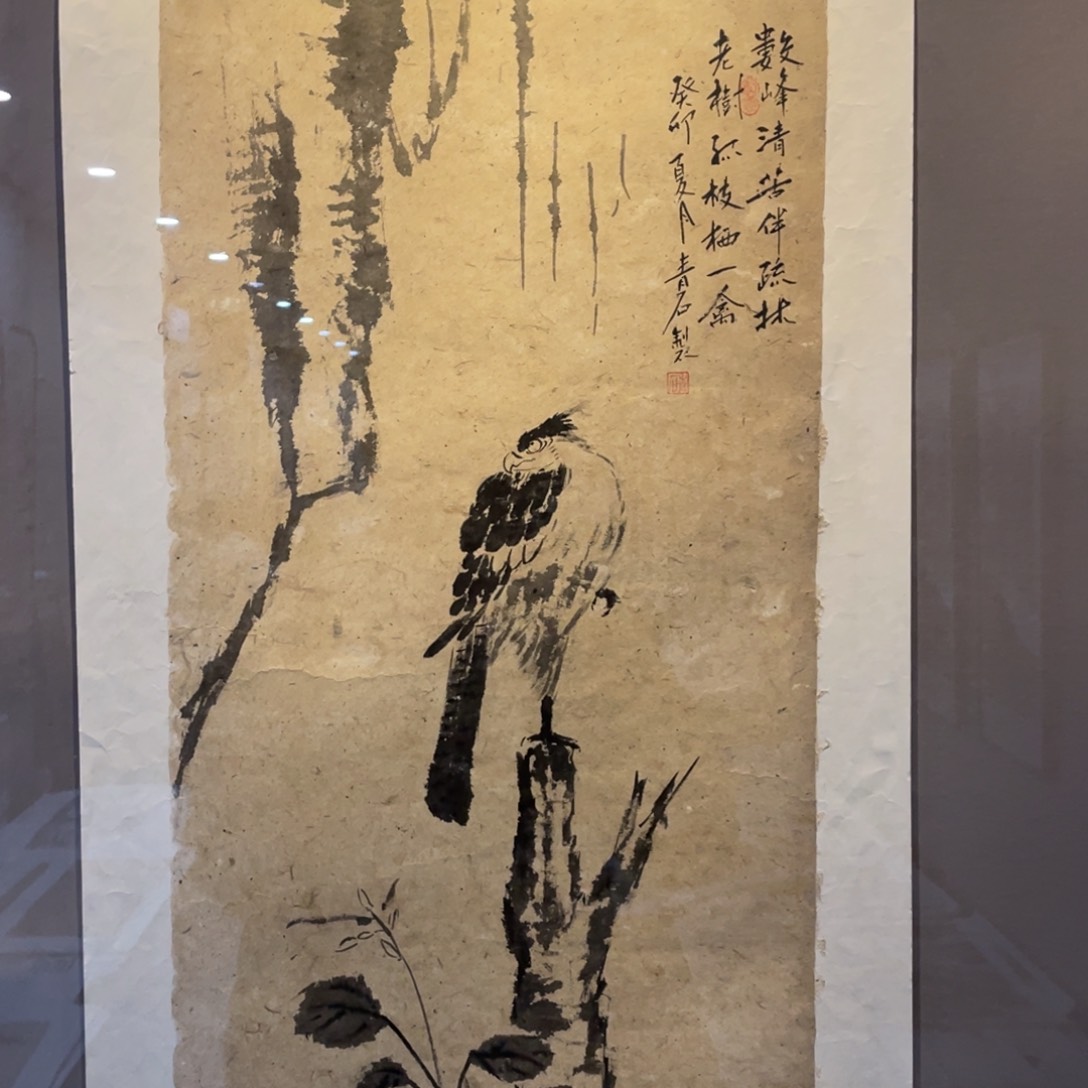 數峰清苦伴疏林
老樹孤枝栖一禽
癸卯夏月青石製